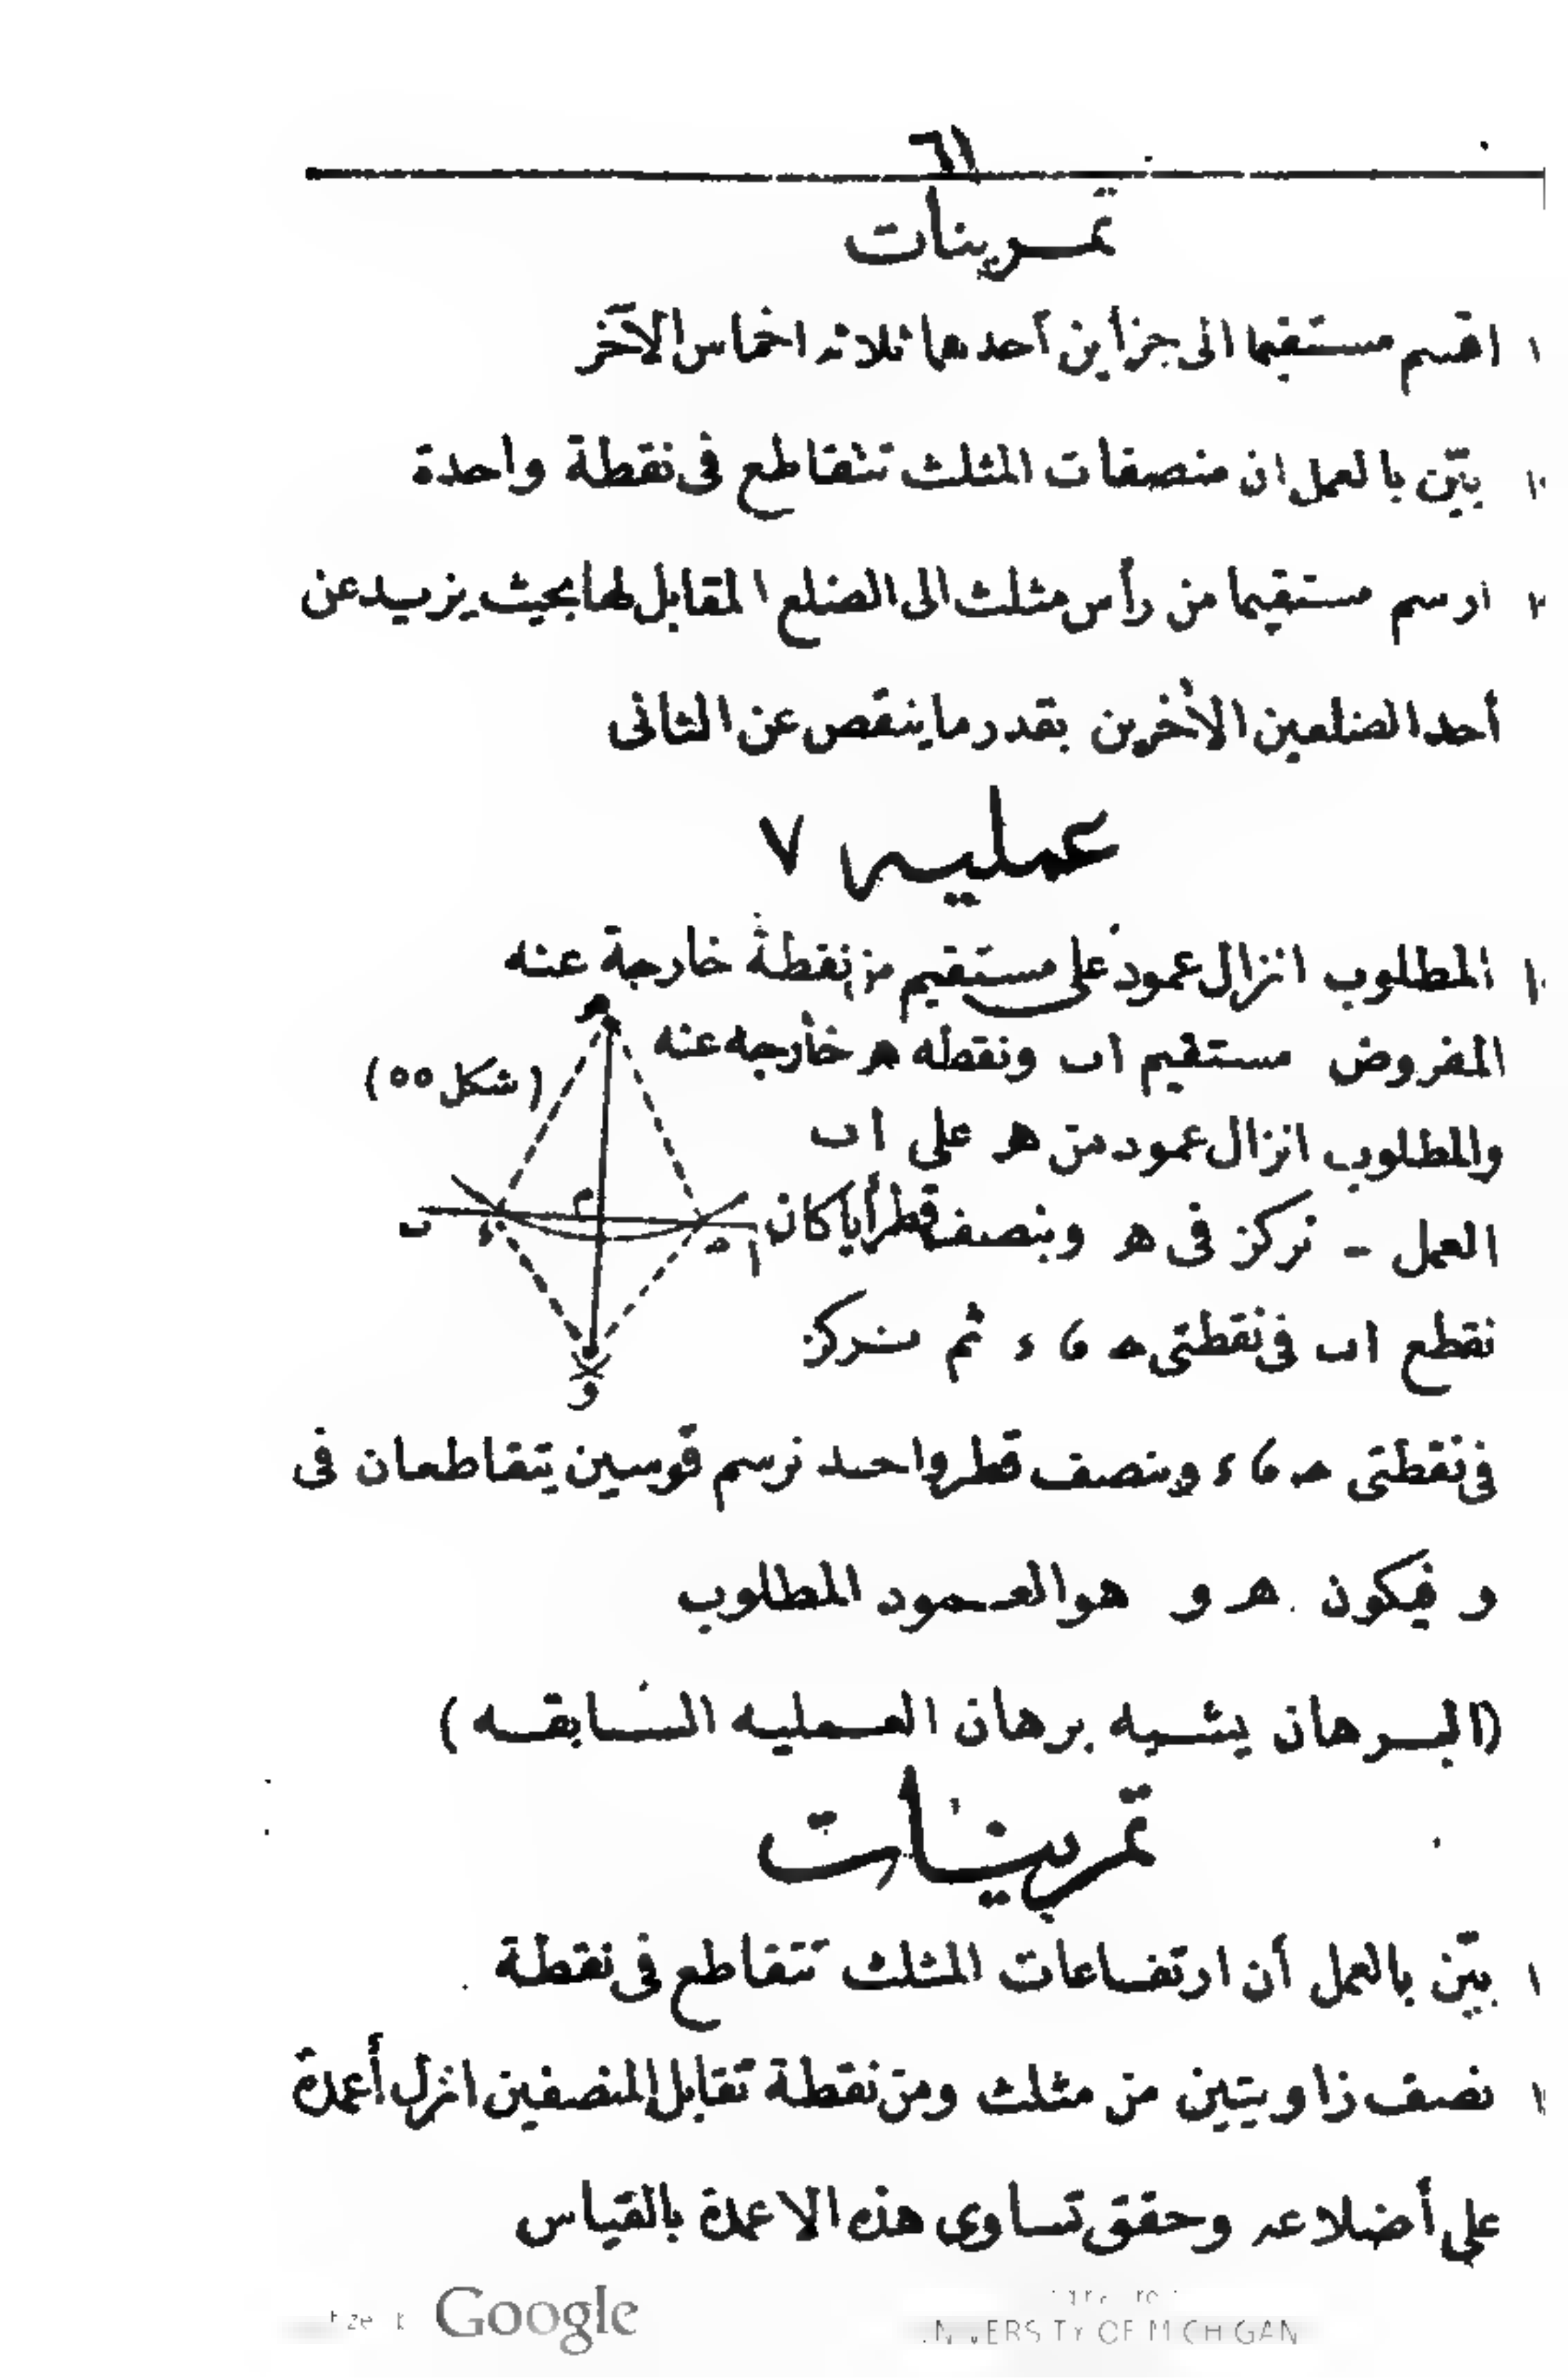 ٦١
تمرينات
١ اقسم مستقيما الى جزأين أحدها ثلاثه اخماس الآخر
بيّن بالعمل ان منصفات المثلث تتقاطع فى نقطة واحدة
ارسم مستقيما من رأس مثلث الى الضلع المقابل لها بحيث يزيد عن
أحد الضلعين الأخرين بقدر ما ينقص عن الثانى
عمليه ٧
المطلوب انزال عمود على مستقيم من نقطة خارجة عنه
المفروض مستقيم اب ونقطه ه خارجه عنه
(شكل ٥٥)
والمطلوب انزال عمود من ه على اب
العمل - نركز فى ه وبنصف قطر أيا كان
نقطع اب فى نقطتى ح ، د ثم نركز
ه
م
ب
د
ح
ا
و
فى نقطتى ح ، د وبنصف قطر واحد نرسم قوسين يتقاطعان فى
و فيكون ه و هو العمود المطلوب
(البرهان يشبه برهان العمليه السابقه)
تمرينات
١ بيّن بالعمل أن ارتفاعات المثلث تتقاطع فى نقطة
نصف زاويتين من مثلث ومن نقطة تقابل المنصفين انزل أعمدة
على أضلاعه وحقق تساوى هذه الاعمدة بالقياس
Google
UNIVERSITY OF MICHIGAN